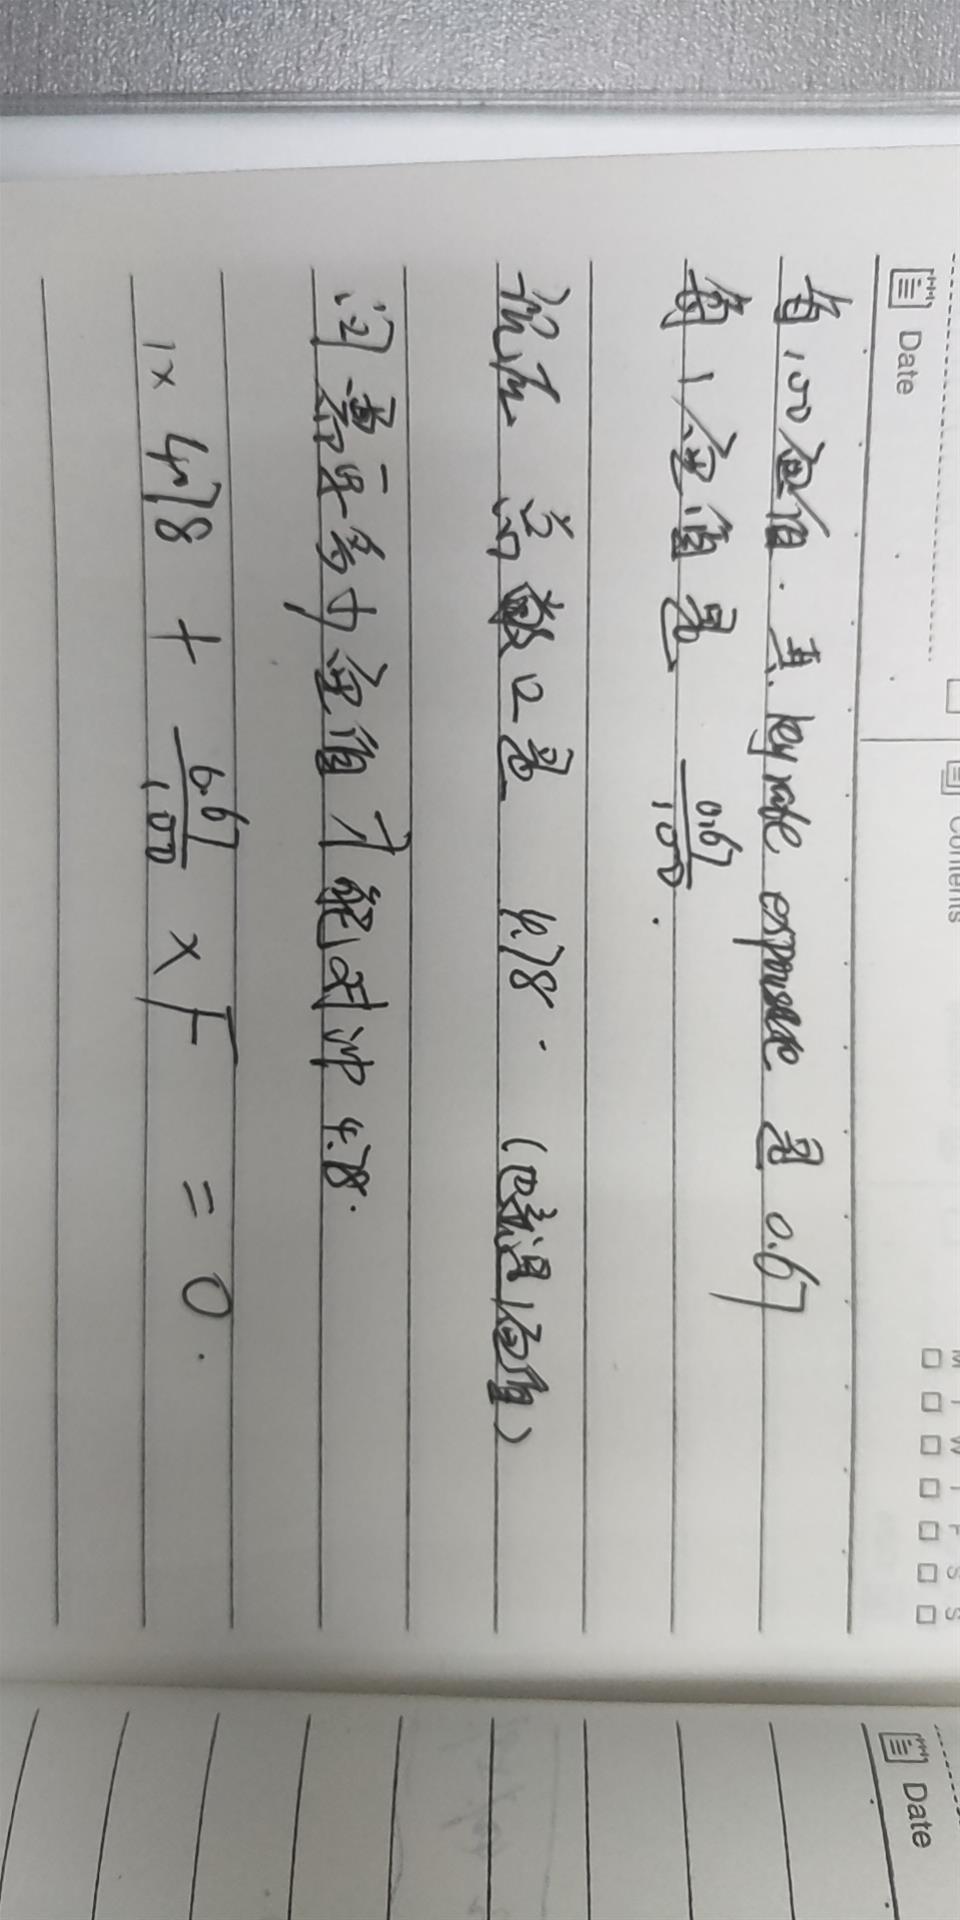 Date
Contents
M T W T F S S
每100面值. 其. key rate exposure 是 0.67
每 1 面值是 0.67/100.
现在 总敞口是 4.78. (已考虑面值)
问需要多少面值才能对冲 4.78.
1 × 4.78 + 6.67/100 × F = 0.
Date